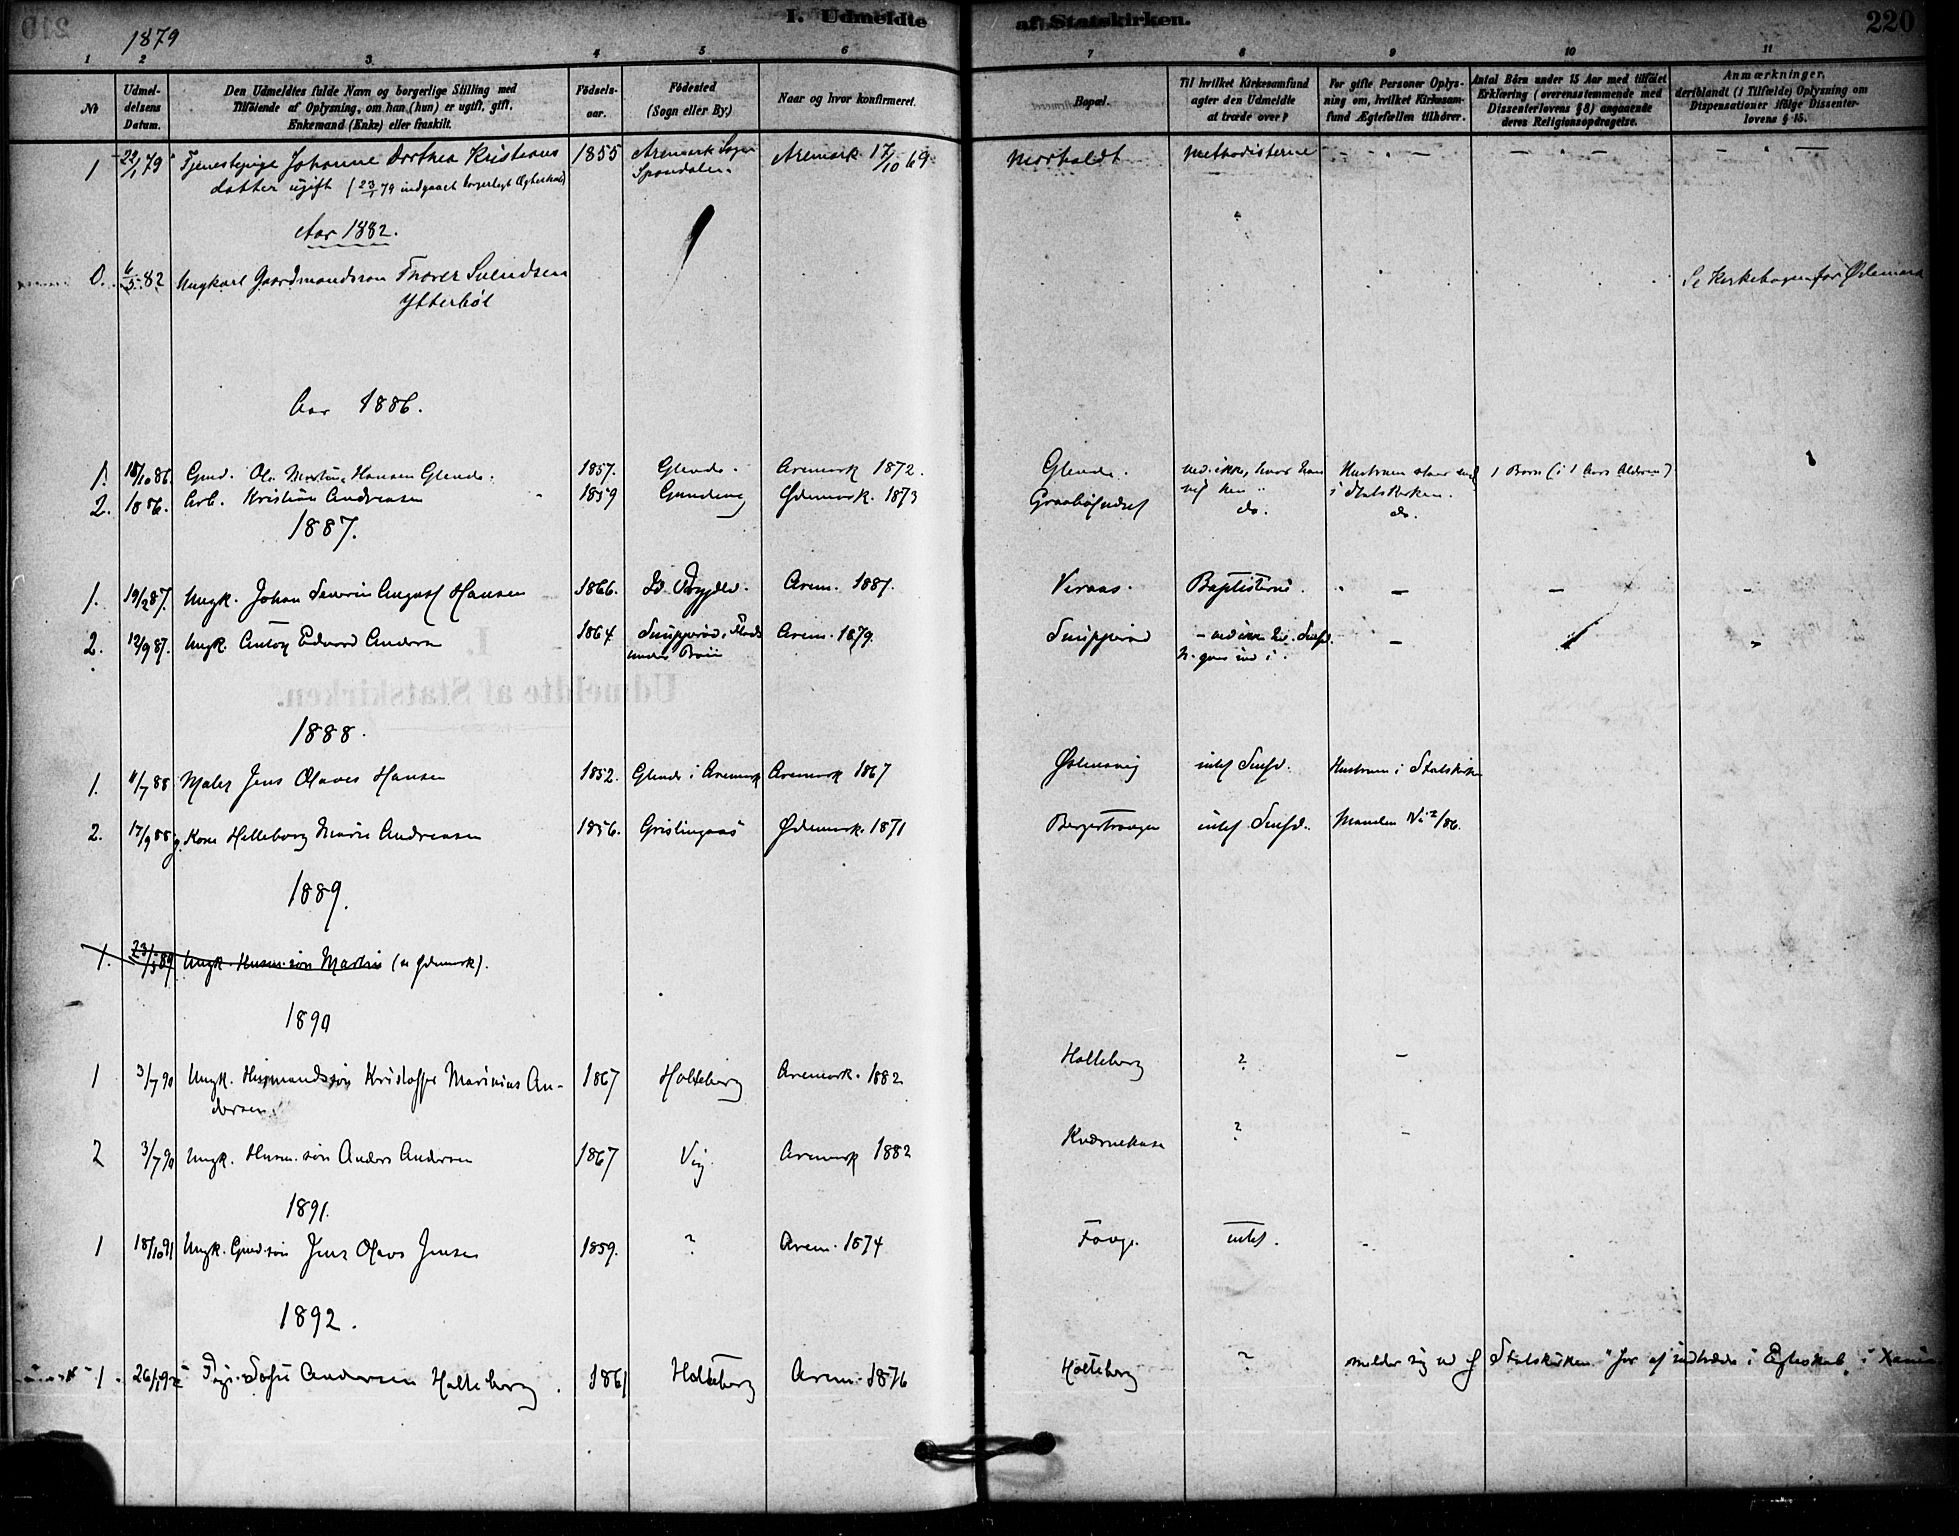 I. Udmeldte af Statskirken.
220
1879
1 2 3 4 5 6 7 8 9 10 11
No
Udmeldelsens Datum.
Den Udmeldtes fulde Navn og borgerlige Stilling med
Tilføiende af Oplysning, om han (hun) er ugift, gift,
Enkemand (Enke) eller fraskilt.
Fødselsaar.
Fødested
(Sogn eller By.)
Naar og hvor konfirmeret.
Bopæl.
Til hvilket Kirkesamfund
agter den Udmeldte
at træde over?
For gifte Personer Oplys-
ning om, hvilket Kirkesam-
fund Ægtefællen tilhører.
Antal Børn under 15 Aar med tilføiet
Erklæring (overensstemmende med
Dissenterlovens § 8) angaaende
deres Religionsopdragelse.
Anmærkninger,
deriblandt (i Tilfælde) Oplysning om
Dispensationer ifølge Dissenter-
lovens § 15.
1 22/1 79 Tjenestepige Johanne Dorthea Kristians 1855 Aremark Sogn Aremark 17/10 69 Methodisterne
datter ugift (23/1 79 indgaaet borgerligt Ægteskab)
Aar 1882.
0. 6/5 82 Ungkarl Gaardmandssøn Thorer Svendsen Se Kirkebogen for Ødemark
Ytterbøl
Aar 1886.
1. 18/10 86. Gmd. Ole Martin Hansen Glende. 1857. Glende. Aremark 1872. Glende. ved ikke, hvor han Hustruen staar 1 Barn (i 1 Aars Alderen)
i Statskirken.
2. 1886. Arb. Kristian Andreasen 1859 Ødemark. 1873 do. do.
1887.
1. 19/2 87. Ungk. Johan Severin August Hansen 1866. Arem. 1881. Viraas. Baptisterne. — —
2. 12/9 87. Ungk. Anton Edvard Anders 1864 Arem. 1879. —
1888.
1. 11/7 88 Maler Jens Olaves Hansen 1852. Glende i Aremark Aremark 1867 intet Hustruen i Statskirken
2. 17/9 88 g. Kone Helleborg Marie Andreasen 1856. Grislingaas Ødemark. 1871 intet Manden No 2/86.
1889.
1. 23/3 89 Ungk. Husm. søn Martin (se Ødemark).
1890
1 3/7 90 Ungk. Husmandssøn Kristoffer Marinius An- 1867 Holteborg Aremark. 1882 Holteborg ? —
dersen.
2 3/7 90 Ungk. Husm. søn Anders Andersen 1867 Vig. Aremark 1882 ? -
1891.
1 18/10 91 Ungk. Gmd. søn Jens Olavs Jensen 1859. ? Arem. 1874 intet. -
1892.
1 26/1 92 Pige Sofie Andersen Holteborg. 1861 Holteborg Arem. 1876 Holteborg ? melder sig ud af Statskirken "for at indtræde i Egteskab" i Xania.